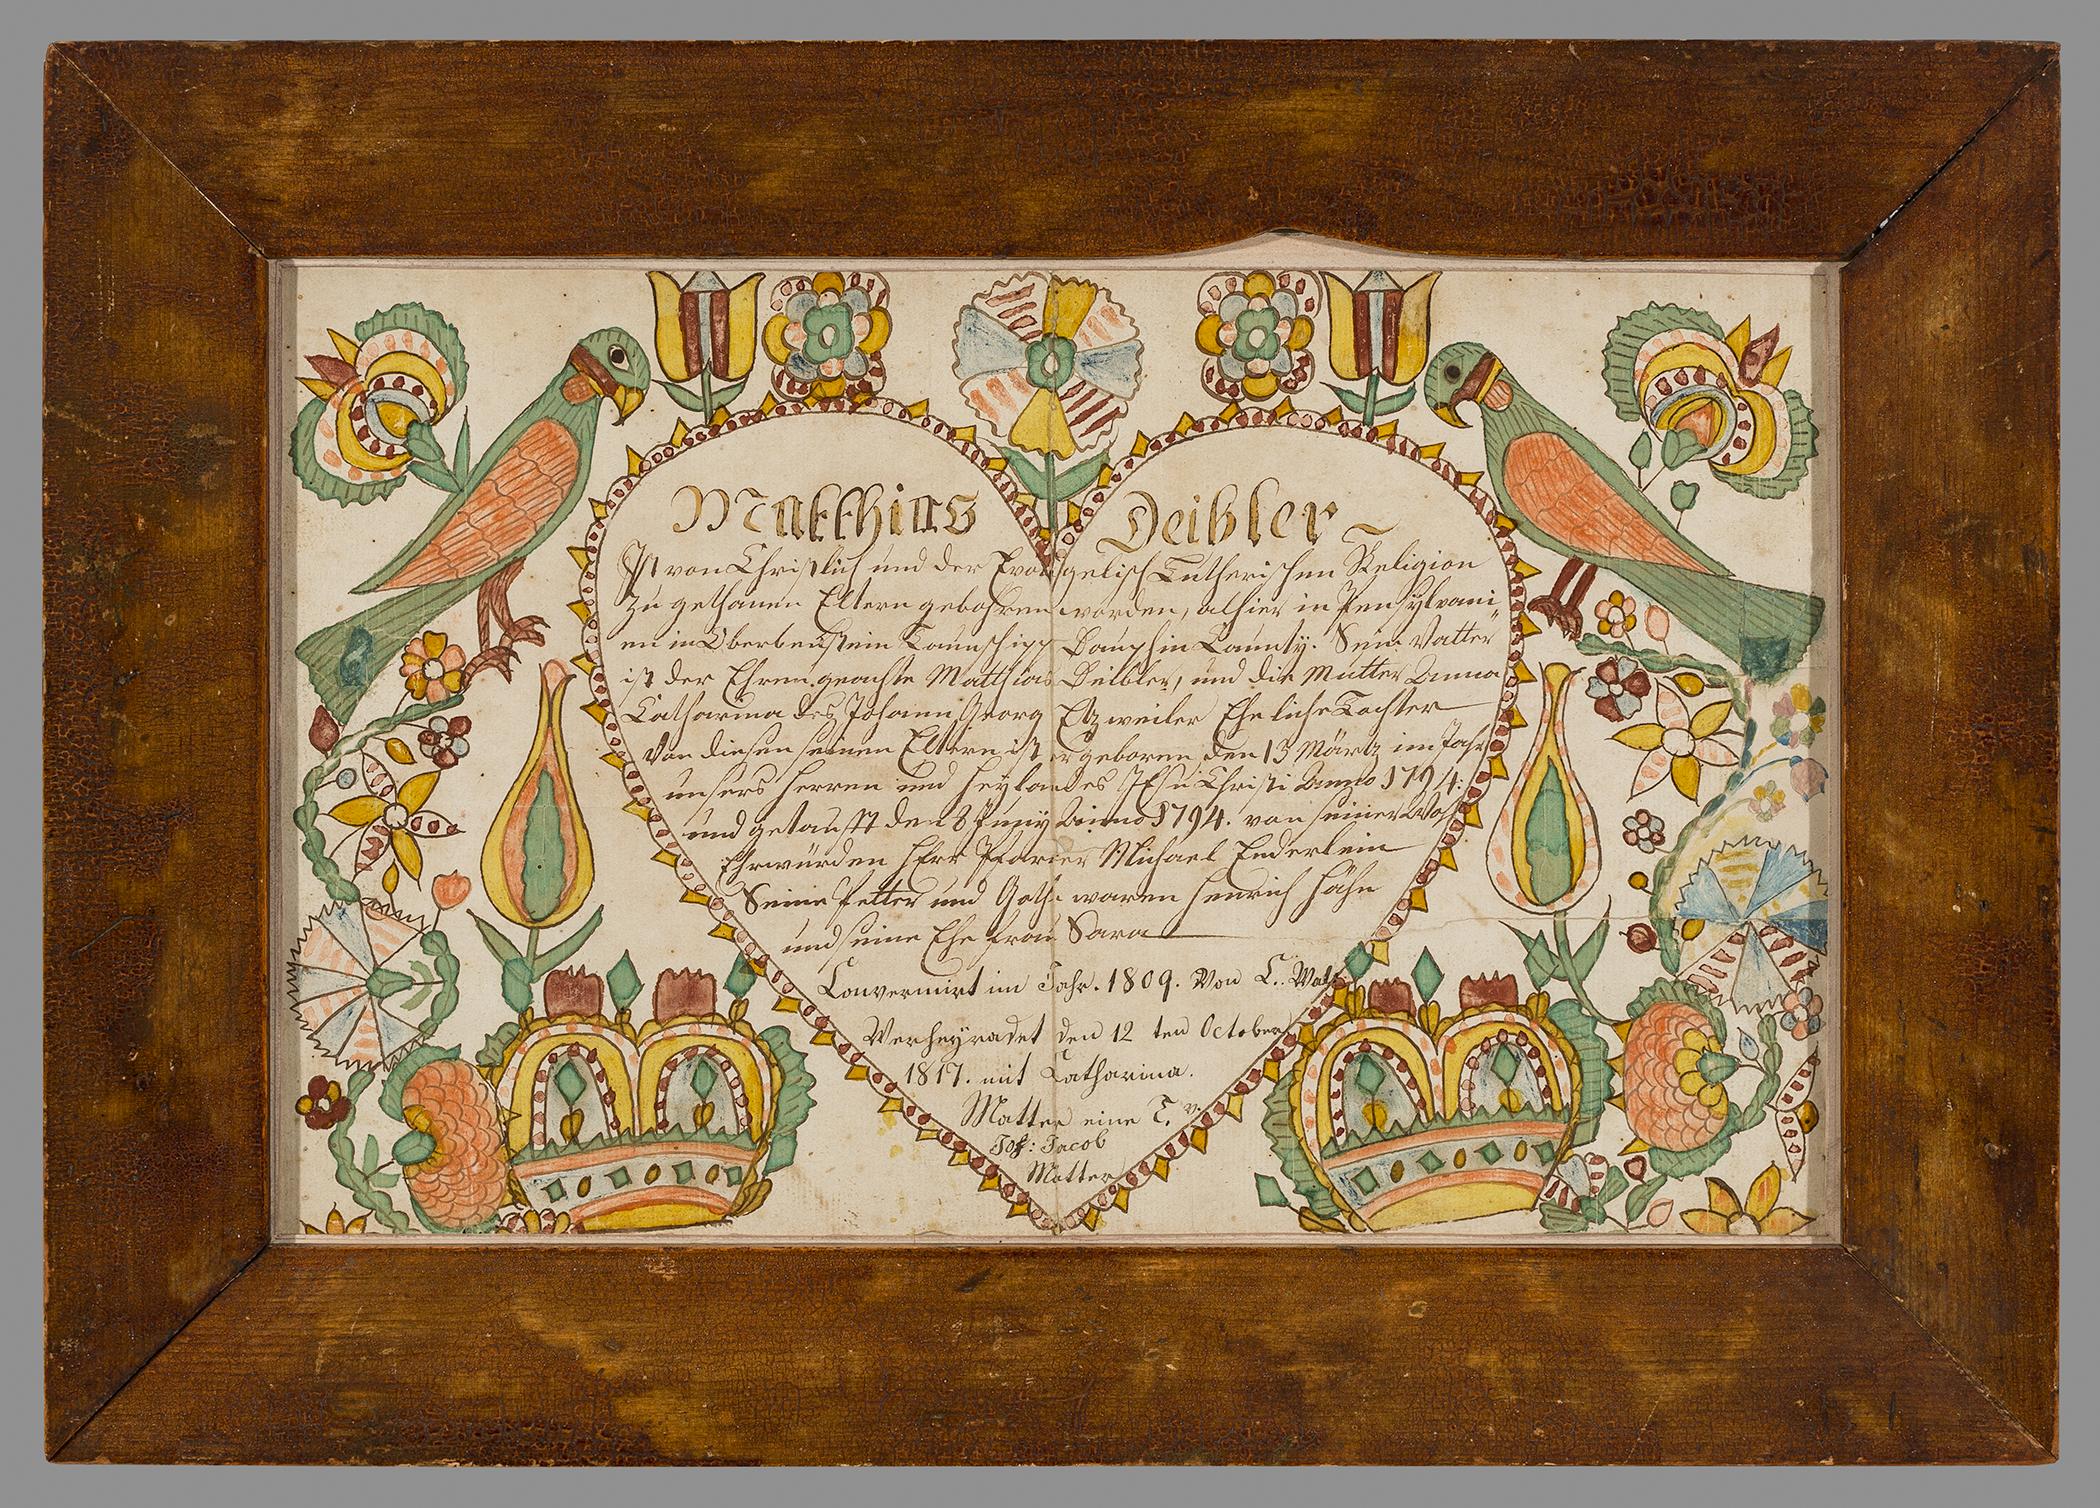 Matthias Deibler
Ist von Christlich und der Evangelisch Lutherischen Religion
zu gethanen Eltern gebohren worden, alhier in Pensylvani=
en in Oberbeustein Taunschipp Dauphin Caunty. Sein Vatter
ist der Ehren geachte Matthias Deibler, und die Mutter Anna
Catharina des Johann Georg Etzweiler Eheliche Tochter
Von diesen seinen Eltern ist er geboren den 13 Märtz im Jahr
unsers Herren und Heylandes JEsu Christi Anno 1794:
und getaufft den 8 Juny Anno 1794. von seiner Wohl
Ehrwürden HErr Pfarrer Michael Enderlein
Seine Petter und Gothe waren Henrich Hähn
und seine Ehe frau Sara
Convermirt im Jahr. 1809. Von C..
Verheyradet den 12 ten October
1817. mit Catharina.
Matter eine T. v:
Joh: Jacob
Matter